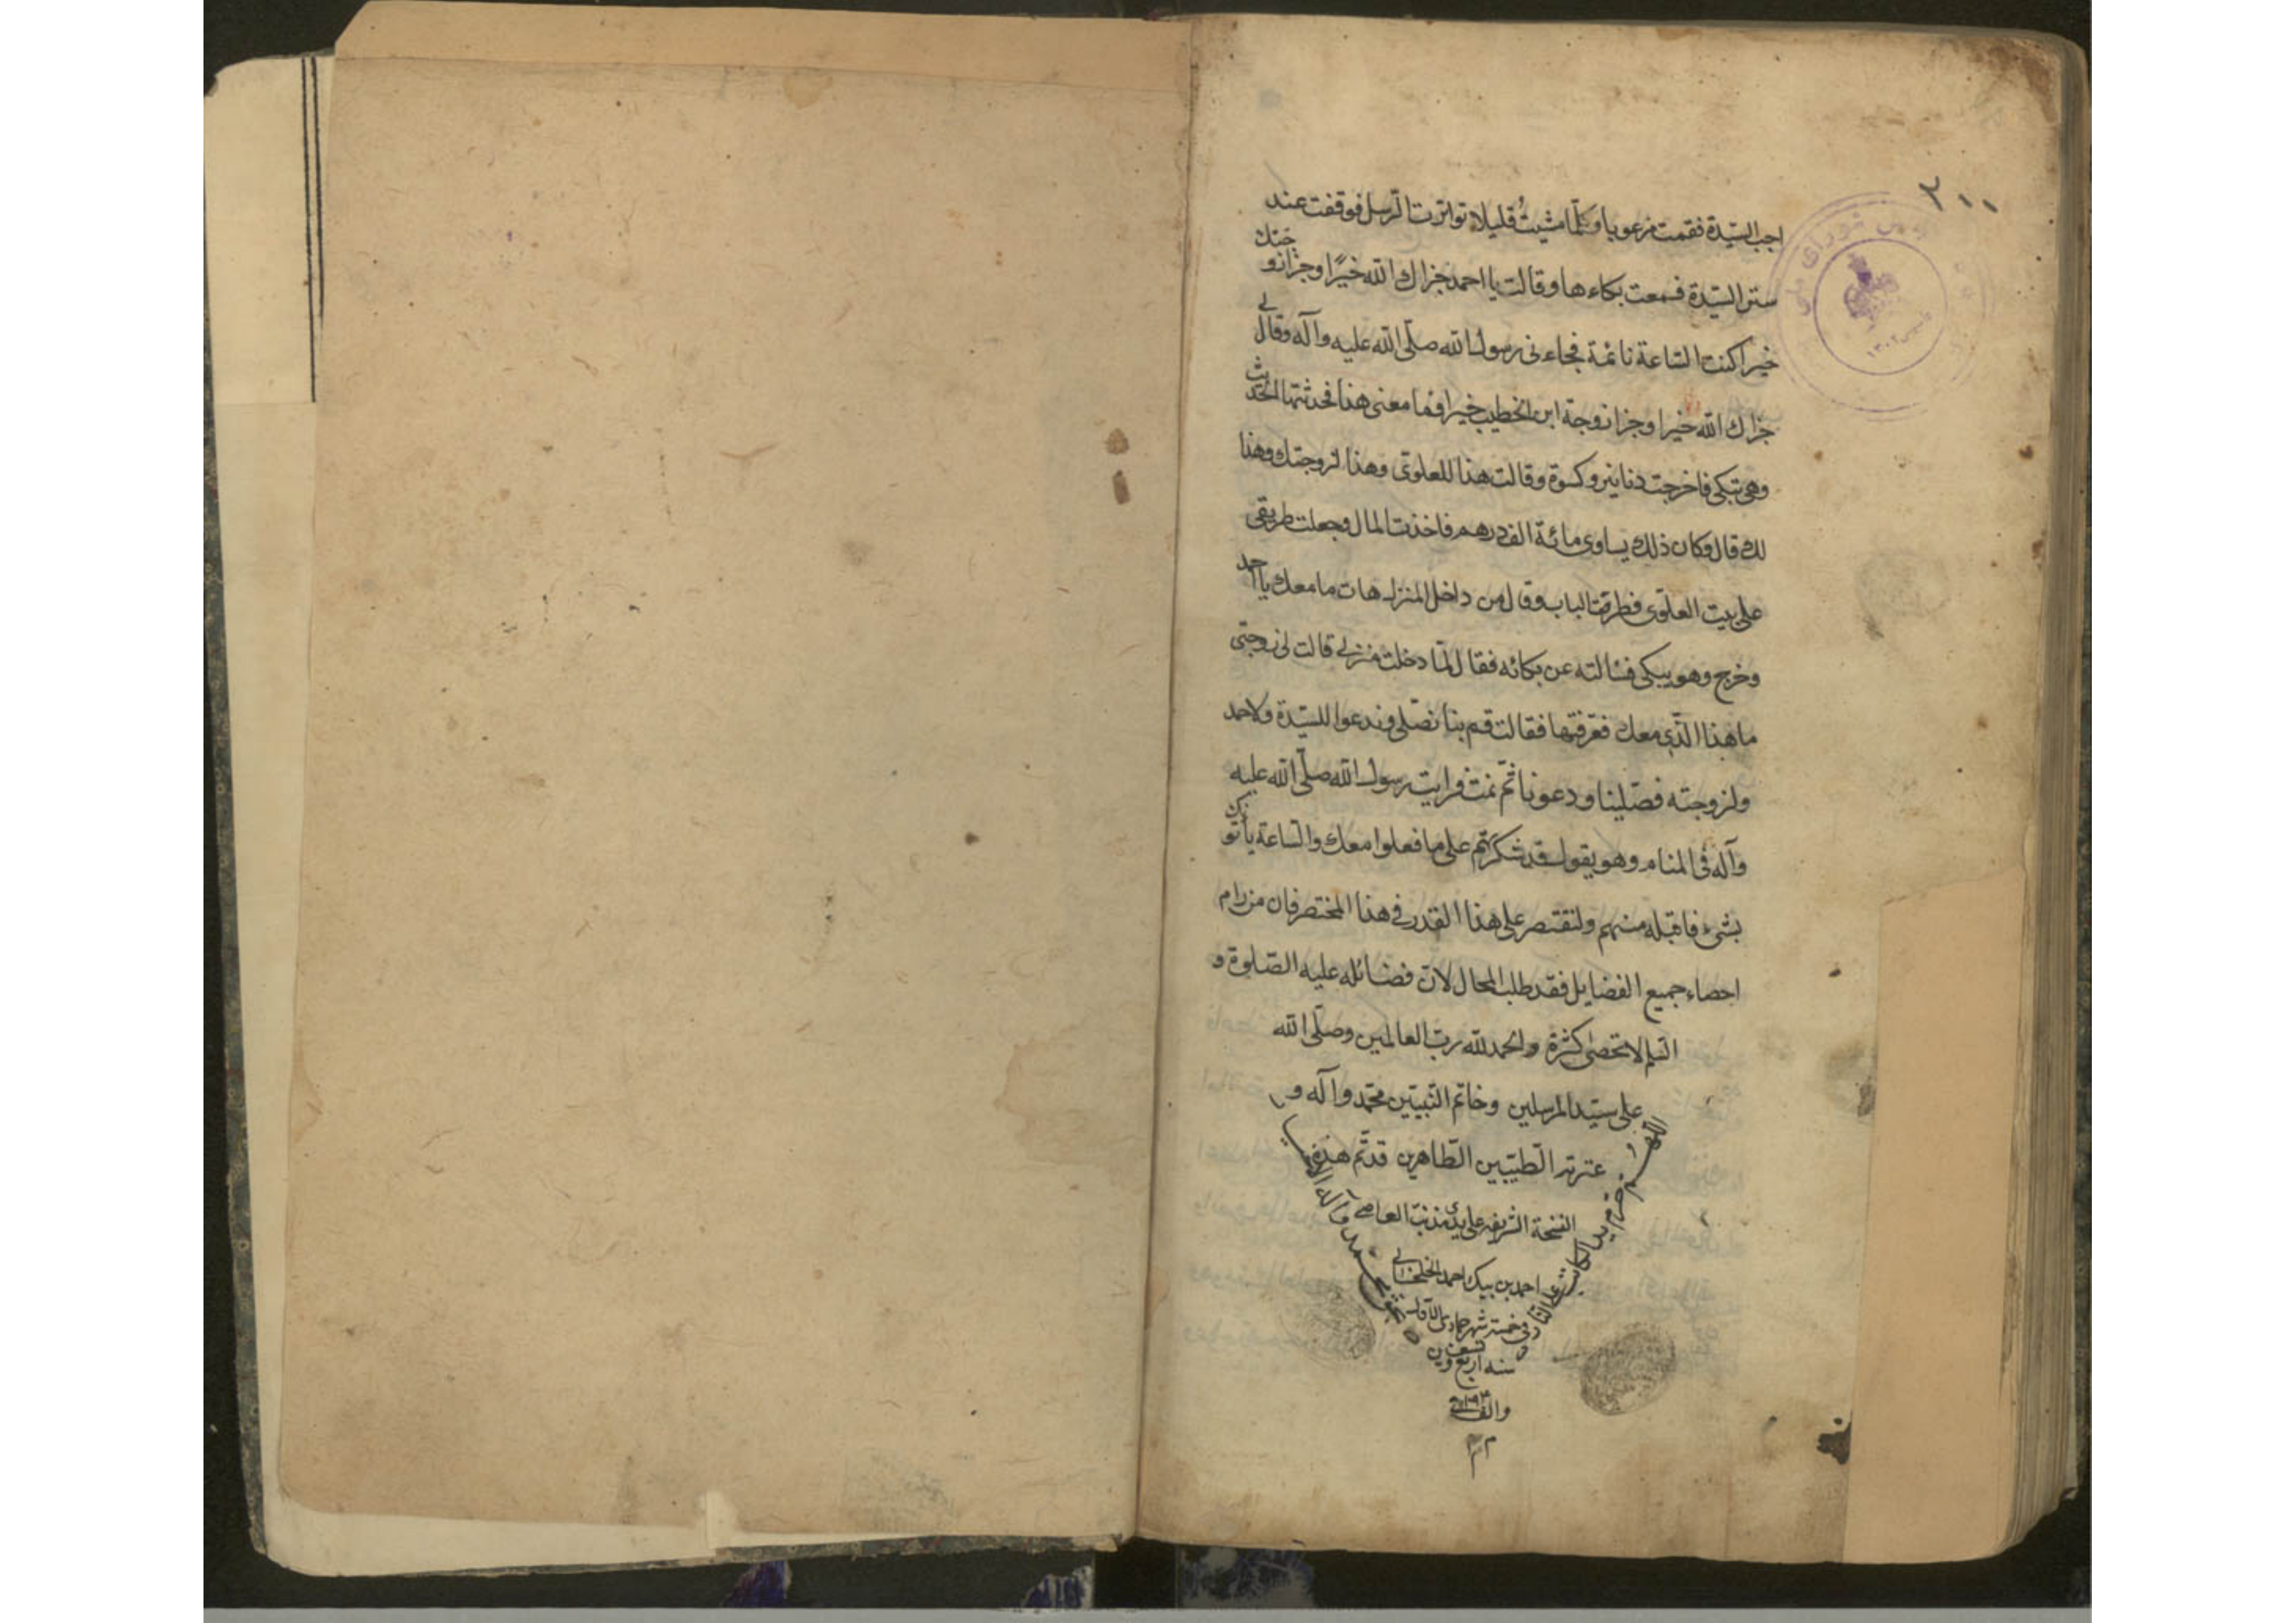 ٢٠٠
اجب السّيّدة فقمت مرعوبا وكلّما مشيتُ قليلا تواترت الرّسل فوقفت عند
ستر السّيّدة فسمعت بكاءها وقالت يا احمد جزاك الله خيرًا وجزا زوجتك
خيرا كنت السّاعة نائمة فجاءنى رسول الله صلّى الله عليه وآله وقال لى
جزاك الله خيرا وجزا زوجة ابن الخطيب خيرا فما معنى هذا فحدثتها الحديث
وهى تبكى فاخرجت دنانير وكسوة وقالت هذا للعلوىّ وهذا لزوجتك وهذا
لك قال وكان ذلك يساوى مائة الف درهم فاخذت المال وجعلت طريقى
على بيت العلوى فطرقت الباب وقال من داخل المنزل هات ما معك يا احمد
وخرج وهو يبكى فسألته عن بكائه فقال لمّا دخلت منزلى قالت لى زوجتى
ما هذا الّذى معك فعرّفتها فقالت قم بنا نصّلى وندعوا للسيّدة ولاحمد
ولزوجته فصلّينا ودعونا ثمّ نمت فرايت رسول الله صلّى الله عليه
وآله فى المنام وهو يقول قد شكرتهم على ما فعلوا معك والسّاعة يأتونك
بشىء فاقبله منهم ولنقتصر على هذا القدر فى هذا المختصر فان من رام
احصاء جميع الفضايل فقد طلب المحال لانّ فضائله عليه الصّلوة و
السّلم لا تحصى كثرة والحمد لله ربّ العالمين وصلّى الله
على سيّد المرسلين وخاتم النّبيّين محمّد وآله و
عترته الطّيّبين الطّاهرين قد تمّ هذه
النسخة الشريفه على يدى مذنب العاصى
احمد بن بيك احمد الخلخالى
فى خمسة شهر جمادى الاوّل
سنه اربع وتسعين
والف
اللّهم حرّم يد الكاتب على النّار
بحق محمد وآله